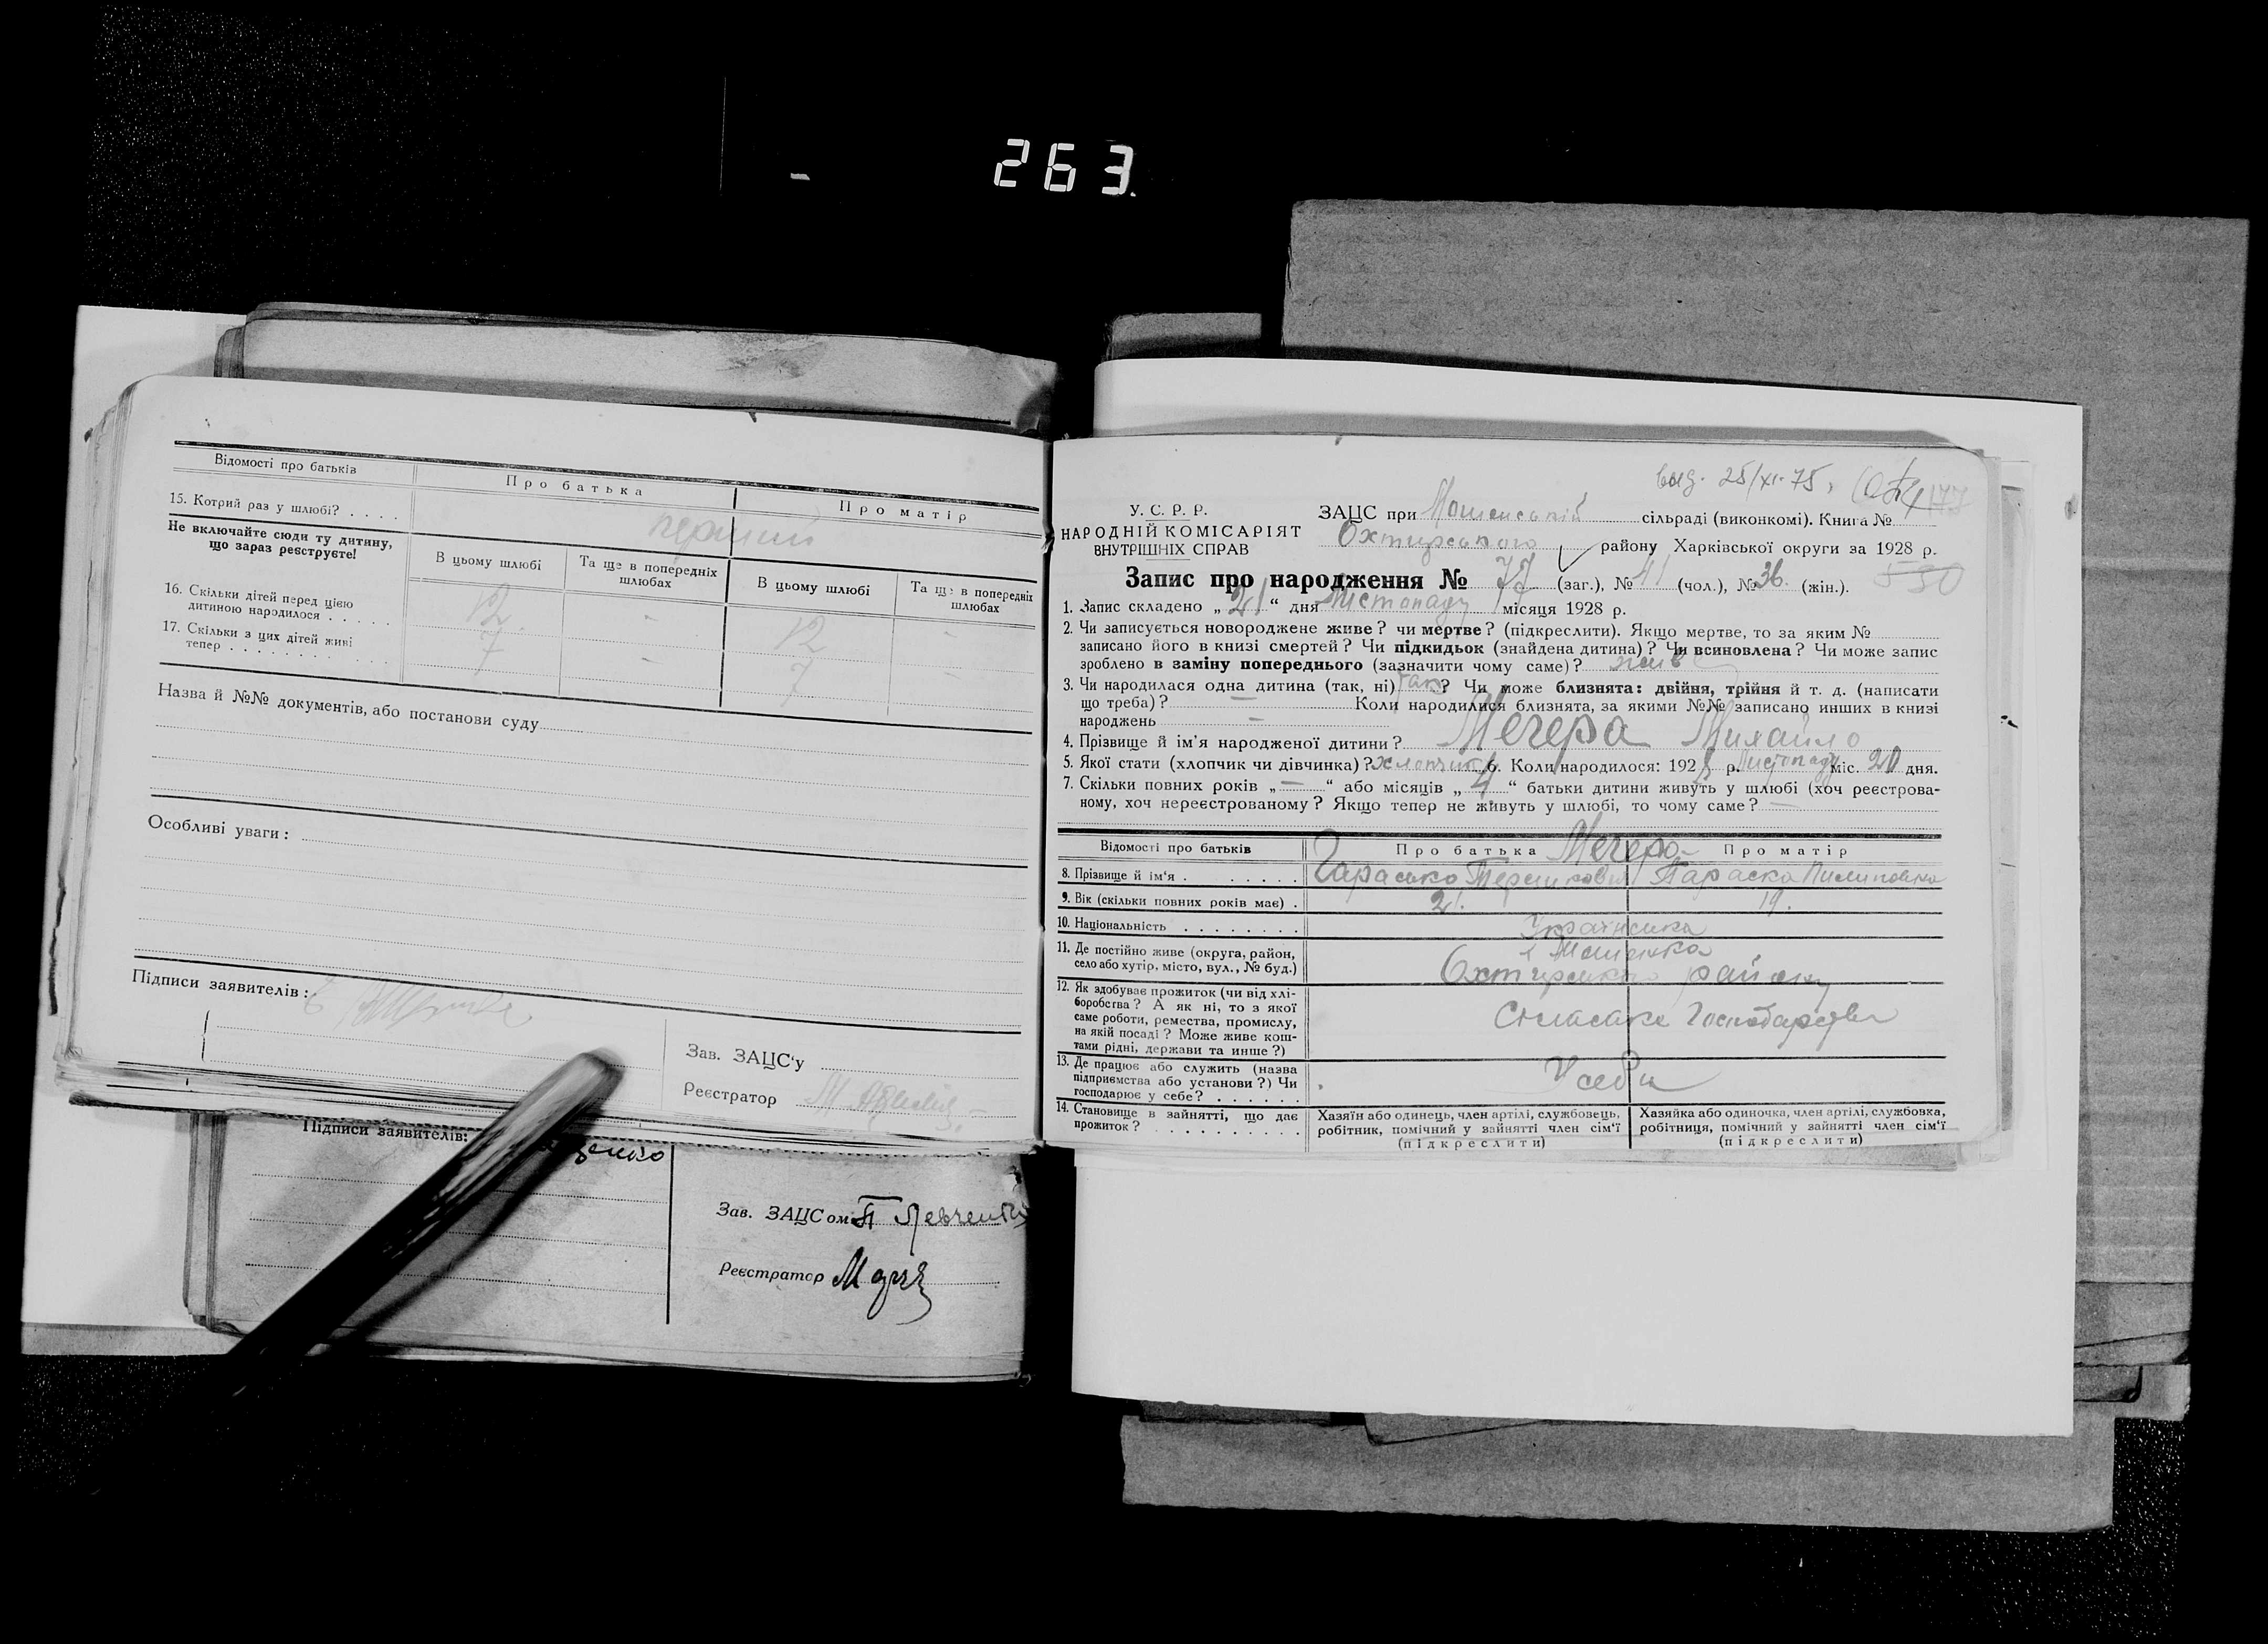 263.
Відомості про батьків
Про батька
Про матір
15. Котрий раз у шлюбі? . . . .
перший
Не включайте сюди ту дитину,
що зараз реєструєте!
В цьому шлюбі
Та ще в попередніх
шлюбах
В цьому шлюбі
Та ще в попередніх
шлюбах
16. Скільки дітей перед цією
дитиною народилося . . . . .
12 - 12 -
17. Скільки з цих дітей живі
тепер . . . . . . . . . . .
7 - 7 -
Назва й №№ документів, або постанови суду
Особливі уваги:
Підписи заявителів:
Зав. ЗАЦС'у
Реєстратор
Підписи заявителів:
Зав. ЗАЦСом
Реєстратор
выд. 25/XI-75,
У. С. Р. Р.
НАРОДНІЙ КОМІСАРІЯТ
ВНУТРІШНІХ СПРАВ
ЗАЦС при сільраді (виконкомі). Книга №
Охтирського району Харківської округи за 1928 р.
530
Запис про народження № 77 (заг.), № 41 (чол.), № 36. (жін.).
1. Запис складено „ 21 “ дня Листопаду місяця 1928 р.
2. Чи записується новороджене живе? чи мертве? (підкреслити). Якщо мертве, то за яким №
записано його в книзі смертей? Чи підкидьок (знайдена дитина)? Чи всиновлена? Чи може запис
зроблено в заміну попереднього (зазначити чому саме)? живе
3. Чи народилася одна дитина (так, ні) так ? Чи може близнята: двійня, трійня й т. д. (написати
що треба)? — Коли народилися близнята, за якими №№ записано инших в книзі
народжень —
4. Прізвище й ім'я народженої дитини? Мечера Михайло
5. Якої стати (хлопчик чи дівчинка)? хлопчик 6. Коли народилося: 1928 р. Листопаду міс. 20 дня.
7. Скільки повних років „ — “ або місяців „ 4 “ батьки дитини живуть у шлюбі (хоч реєстрова-
ному, хоч нереєстрованому? Якщо тепер не живуть у шлюбі, то чому саме? —
Відомості про батьків
Про батька
Мечера
Про матір
8. Прізвище й ім'я . . . . . . .
Параска Пилиповна
9. Вік (скільки повних років має) .
21. 19.
10. Національність . . . . . . . .
Українська
11. Де постійно живе (округа, район,
село або хутір, місто, вул., № буд.)
Охтирського району
12. Як здобуває прожиток (чи від хлі-
боробства? А як ні, то з якої
саме роботи, ремества, промислу,
на якій посаді? Може живе кош-
тами рідні, держави та инше?)
13. Де працює або служить (назва
підприємства або установи?) Чи
господарює у себе? . . . . . .
У себе
14. Становище в зайнятті, що дає
прожиток? . . . . . . . . . .
Хазяїн або одинець, член артілі, службовець,
робітник, помічний у зайнятті член сім'ї
(підкреслити)
Хазяйка або одиночка, член артілі, службовка,
робітниця, помічний у зайнятті член сім'ї
(підкреслити)